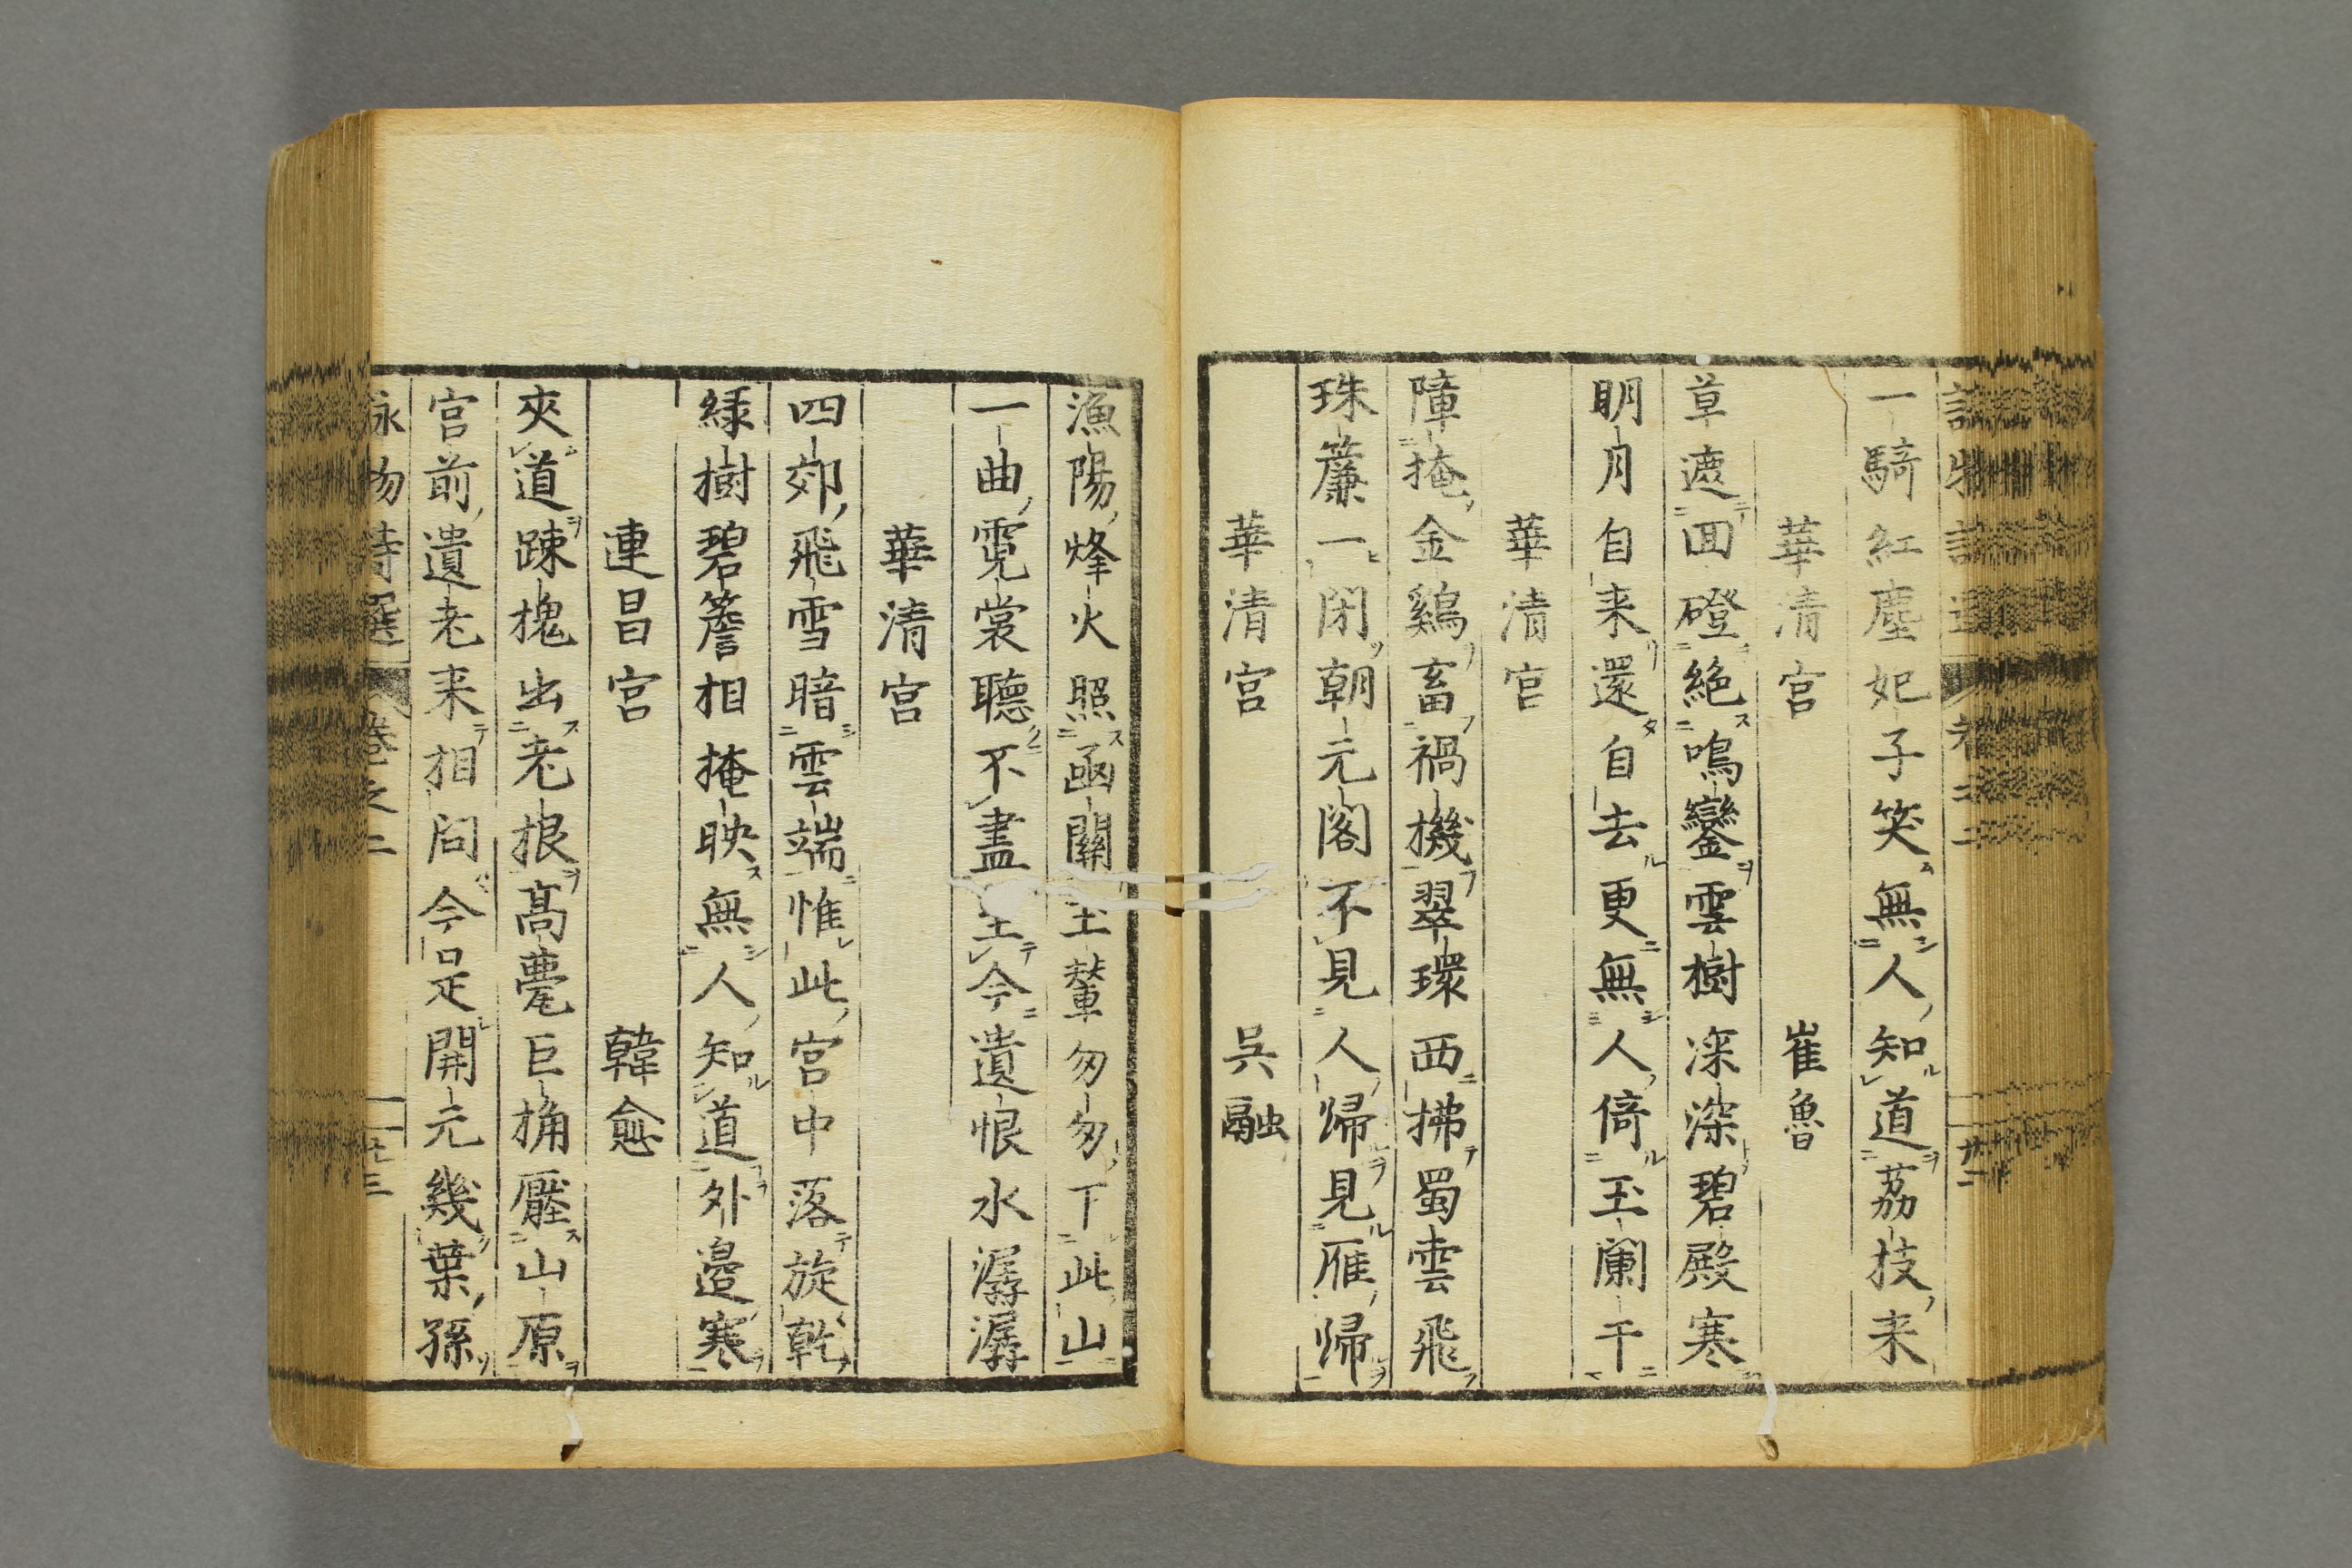 一騎紅塵妃子笑無人知道荔技来
華清宮 崔魯
草遮囬磴絶鳴鑾雲樹深深碧殿寒
明月自来還自去更無人倚玉闌干
華清宮
障掩金鷄畜禍機翠環西拂蜀雲飛
珠簾一閉朝元閣不見人歸見雁歸
華清宮 呉融
漁陽烽火照函關玉輦匆匆下此山
一曲霓裳聽不盡至今遺恨水潺潺
華清宮
四郊飛雪暗雲端惟此宮中落旋乾
緑樹碧簷相掩映無人知道外邉寒
連昌宮 韓愈
夾道踈槐出老根髙甍巨桷壓山原
宮前遺老来相問今是開元幾葉孫
詠物詩選 卷之二 九三